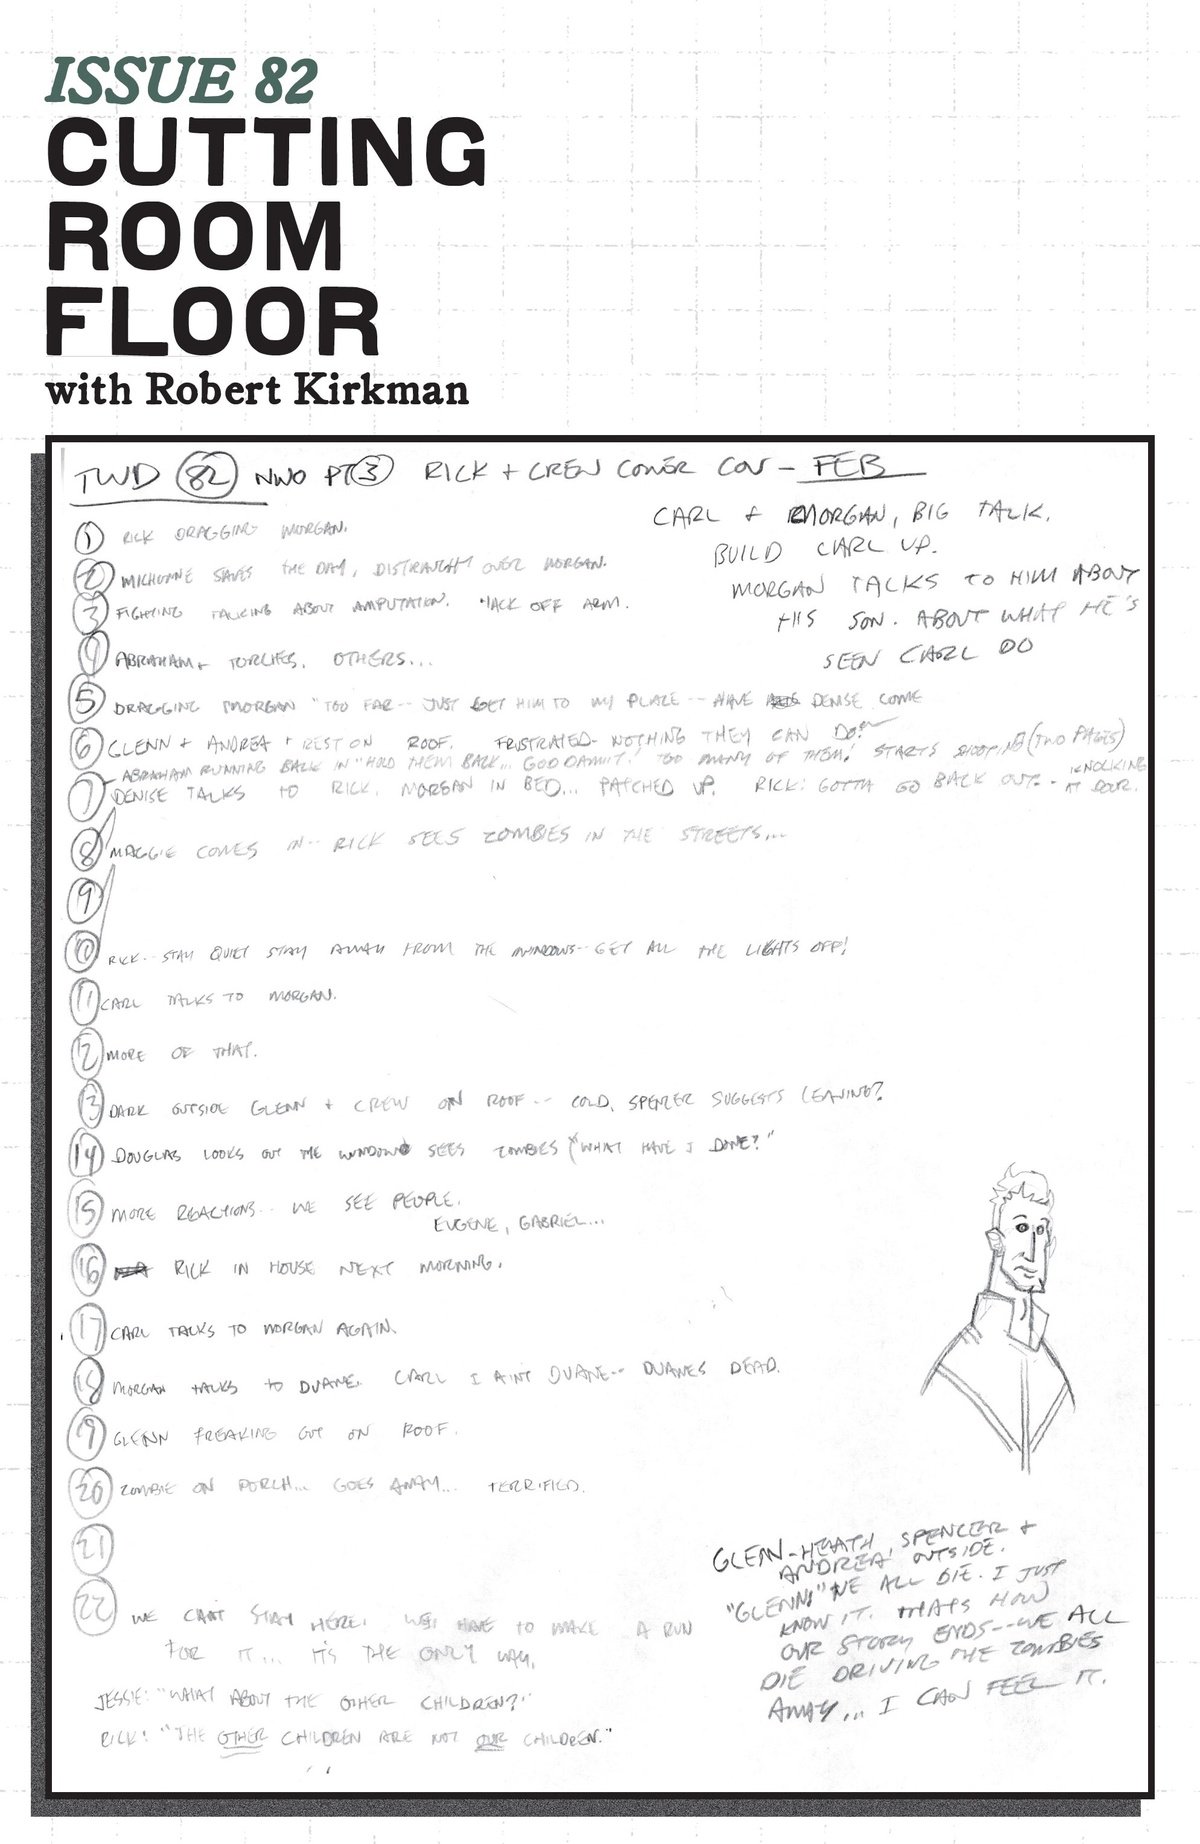 ISSUE 82
CUTTING
ROOM
FLOOR
with Robert Kirkman
TWD 82 NWO PT 3 RICK + CREW COVER COV - FEB
CARL & MORGAN, BIG TALK.
BUILD CARL UP.
MORGAN TALKS TO HIM ABOUT
HIS SON. ABOUT WHAT HE'S
SEEN CARL DO
1 RICK DRAGGING MORGAN.
2 MICHONNE SAVES THE DAY, DISTRAUGHT OVER MORGAN.
3 FIGHTING TALKING ABOUT AMPUTATION. HACK OFF ARM.
4 ABRAHAM + TORCHES. OTHERS...
5 DRAGGING MORGAN "TOO FAR-- JUST GET HIM TO MY PLACE -- HAVE DENISE COME
6 GLENN + ANDREA + REST ON ROOF. FRUSTRATED- NOTHING THEY CAN DO?
ABRAHAM RUNNING BACK IN "HOLD THEM BACK... GOD DAMMIT! TOO MANY OF THEM! STARTS SHOOTING (TWO PAGES)
7 DENISE TALKS TO RICK. MORGAN IN BED... PATCHED UP. RICK: GOTTA GO BACK OUT-- KNOCKING
AT DOOR.
8 MAGGIE COMES IN-- RICK SEES ZOMBIES IN THE STREETS...
9
10 RICK-- STAY QUIET STAY AWAY FROM THE WINDOWS-- GET ALL THE LIGHTS OFF!
11 CARL TALKS TO MORGAN.
12 MORE OF THAT.
13 DARK OUTSIDE GLENN + CREW ON ROOF-- COLD, SPENCER SUGGESTS LEAVING?
14 DOUGLAS LOOKS OUT THE WINDOW SEES ZOMBIES ("WHAT HAVE I DONE?"
15 MORE REACTIONS-- WE SEE PEOPLE.
EUGENE, GABRIEL...
16 RICK IN HOUSE NEXT MORNING.
17 CARL TALKS TO MORGAN AGAIN.
18 MORGAN TALKS TO DUANE. CARL I AIN'T DUANE-- DUANES DEAD.
19 GLENN FREAKING OUT ON ROOF.
20 ZOMBIE ON PORCH... GOES AWAY... TERRIFIED.
21
22 WE CAN'T STAY HERE. WE HAVE TO MAKE A RUN
FOR IT... IT'S THE ONLY WAY.
JESSIE: "WHAT ABOUT THE OTHER CHILDREN?"
RICK: "THE OTHER CHILDREN ARE NOT OUR CHILDREN."
GLENN-HEATH, SPENCER +
ANDREA OUTSIDE.
"GLENN: "WE ALL DIE. I JUST
KNOW IT. THATS HOW
OUR STORY ENDS--WE ALL
DIE DRIVING THE ZOMBIES
AWAY... I CAN FEEL IT.